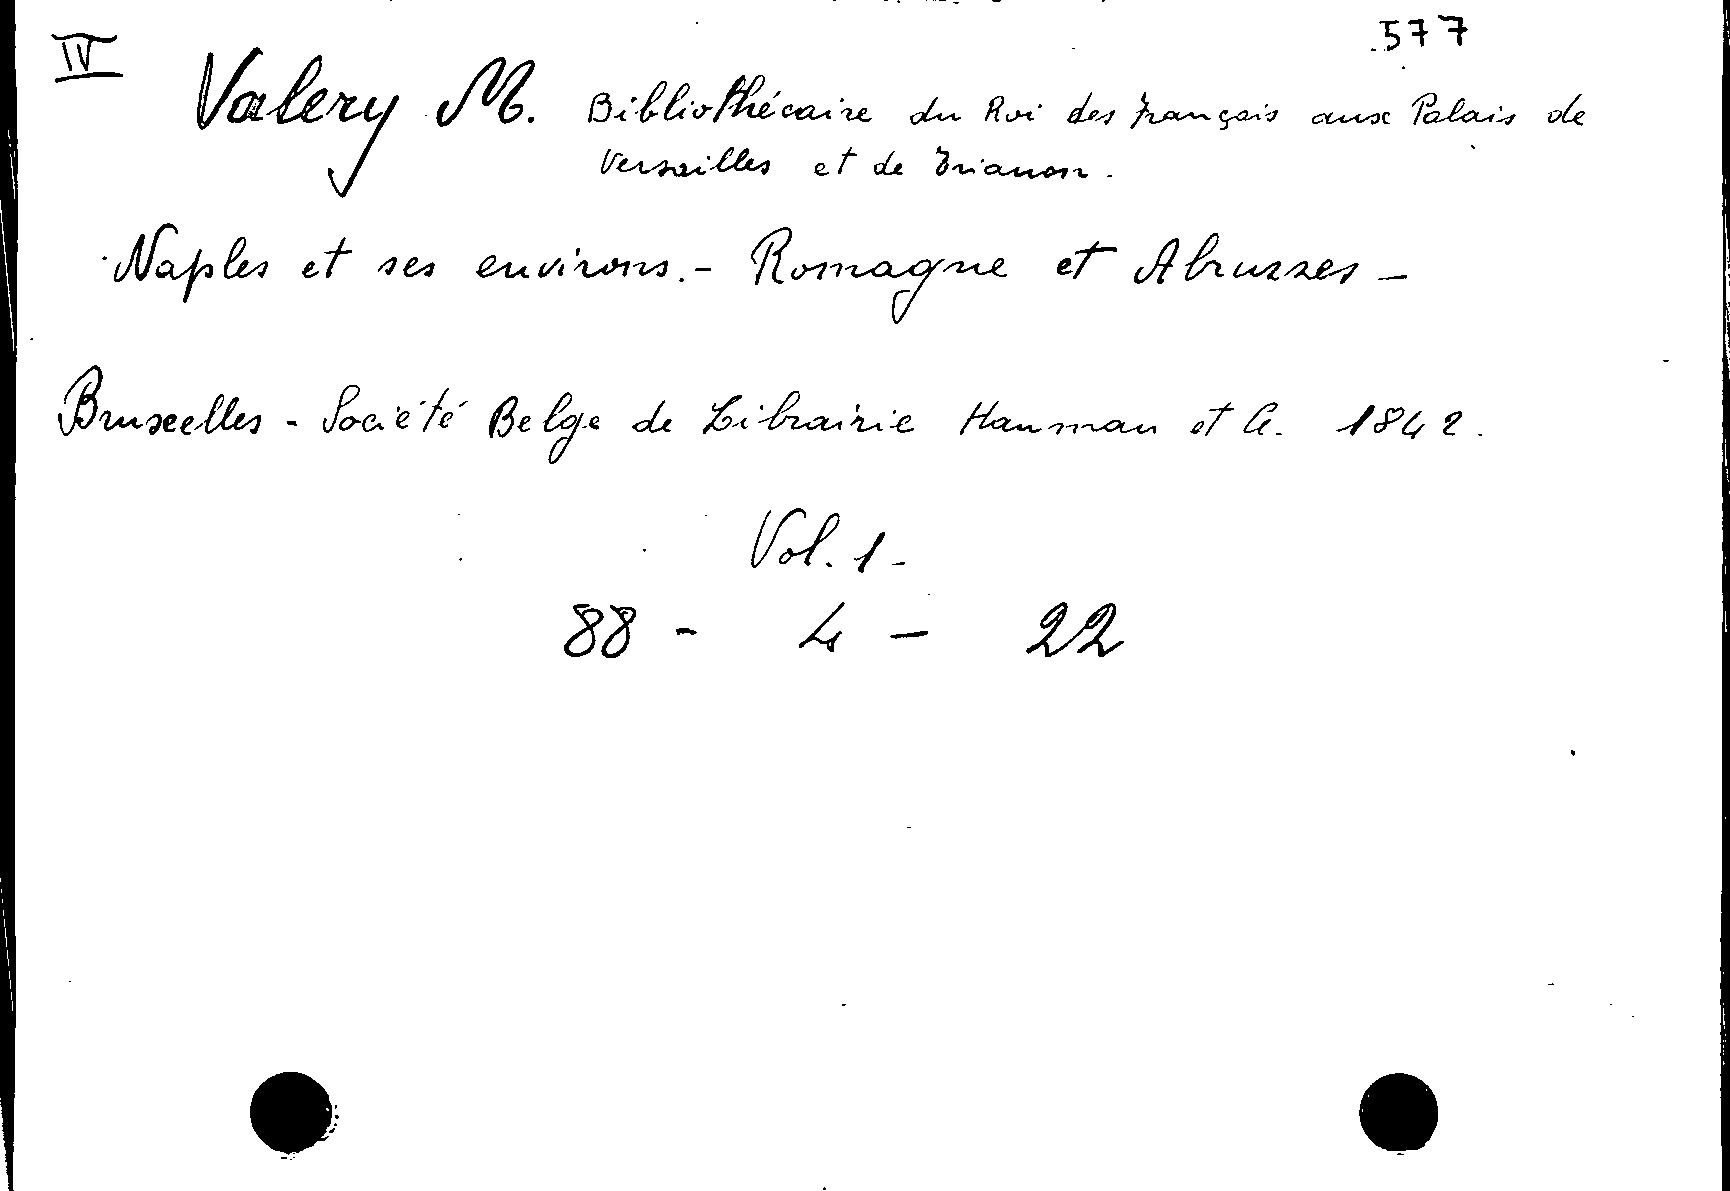 IV
577
Valery M. Bibliothécaire du Roi des français aux Palais de
Versailles et de Trianon.
Naples et ses environs. - Romagne et Abruzzes -
Bruxelles - Société Belge de Librairie Hauman et C. 1842.
Vol. 1 -
88 - 4 - 22